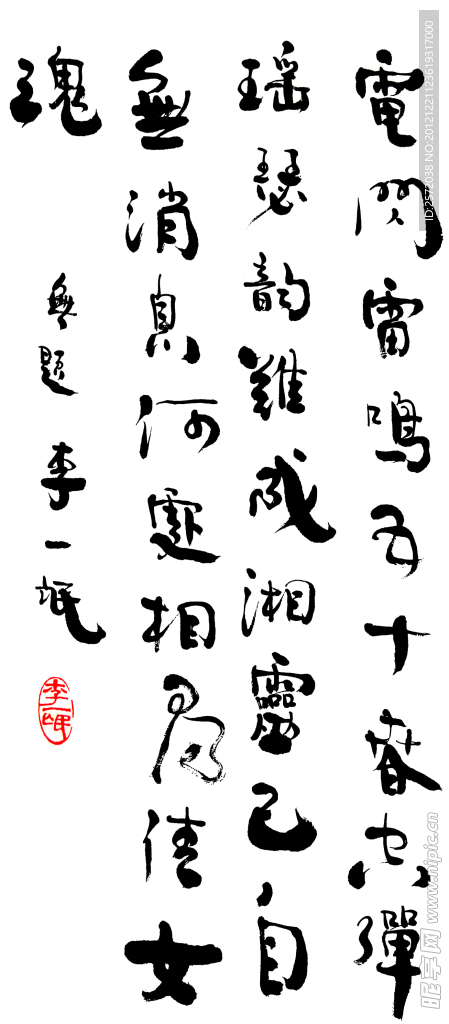 電閃雷鳴五十春空彈
瑤瑟韻難成湘靈已自
無消息何處相尋倩女
魂
無題 李一氓
李一氓
NO:20121221123619317000
昵享网 www.nipic.cn